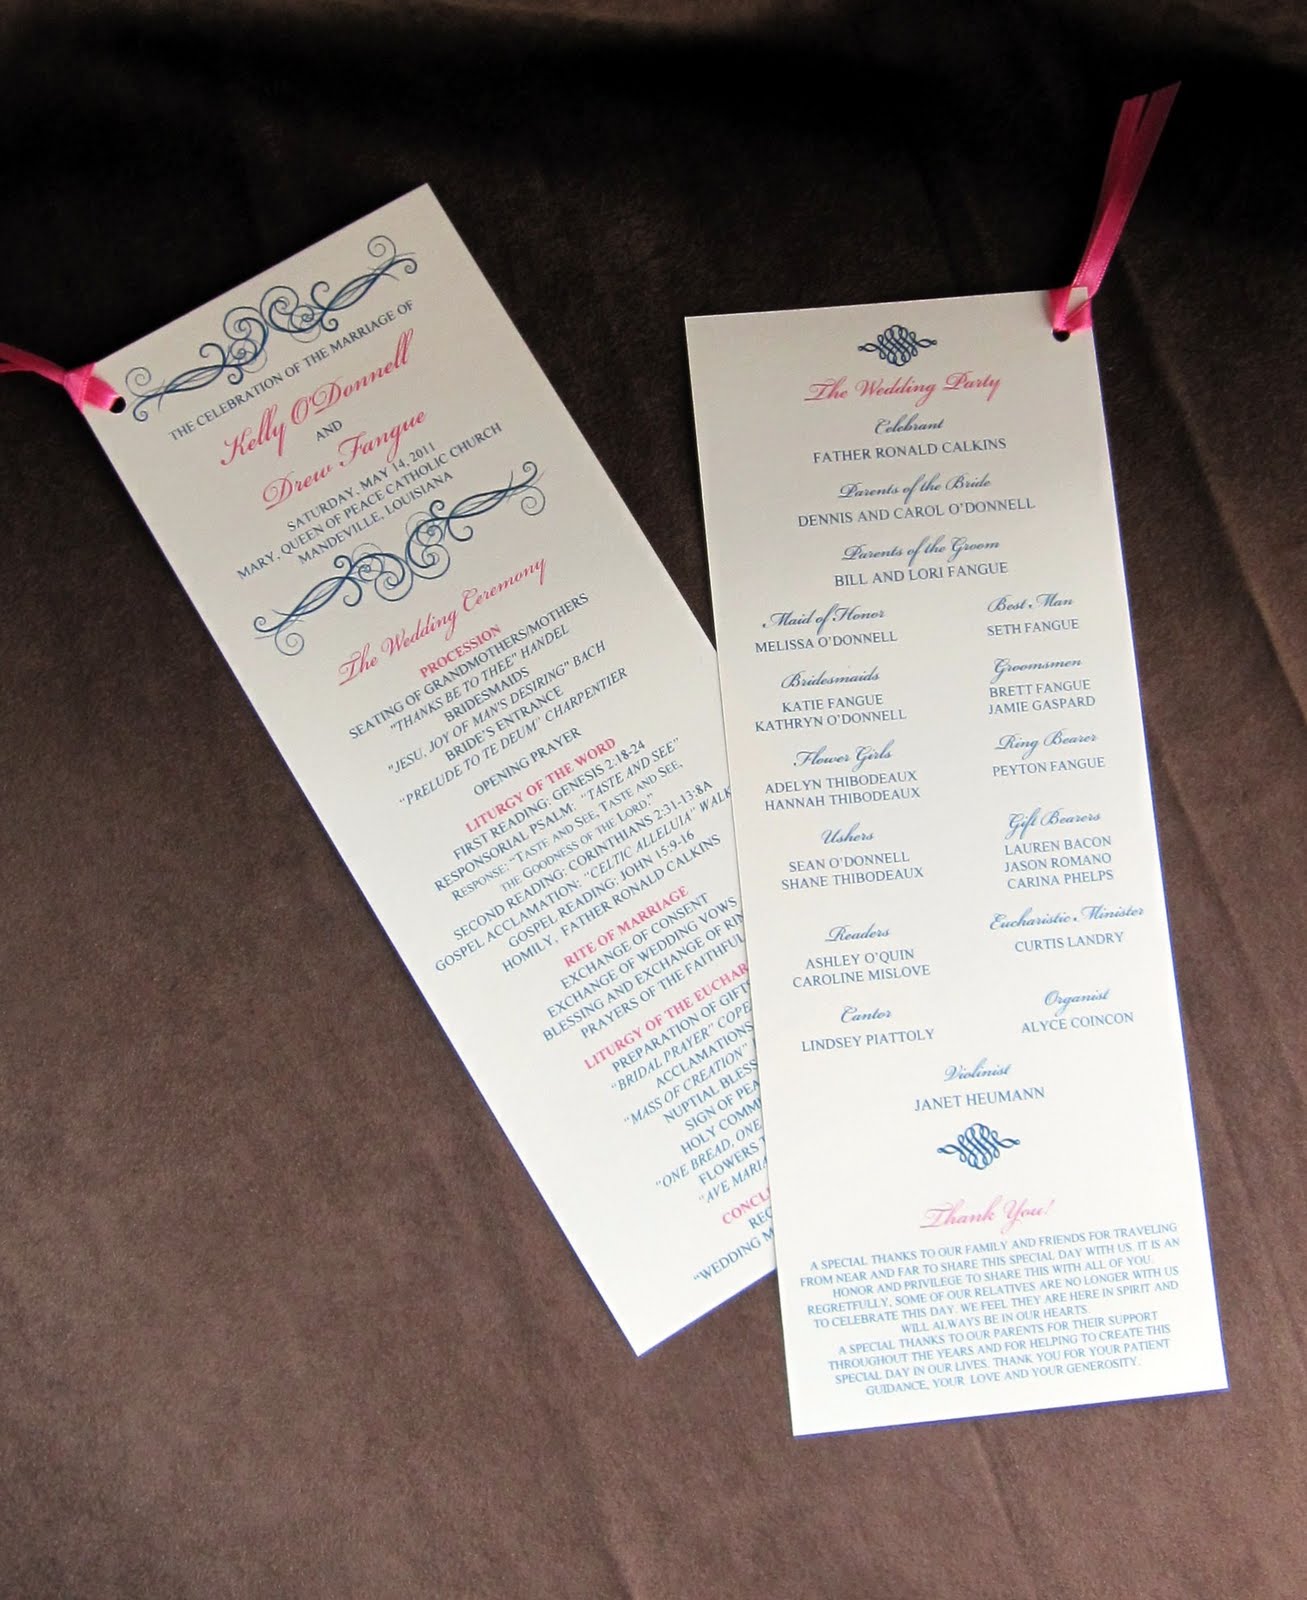 THE CELEBRATION OF THE MARRIAGE OF
Kelly O'Donnell
AND
Drew Fangue
SATURDAY, MAY 14, 2011
MARY, QUEEN OF PEACE CATHOLIC CHURCH
MANDEVILLE, LOUISIANA
The Wedding Ceremony
PROCESSION
SEATING OF GRANDMOTHERS/MOTHERS
"THANKS BE TO THEE" HANDEL
BRIDESMAIDS
"JESU, JOY OF MAN'S DESIRING" BACH
BRIDE'S ENTRANCE
"PRELUDE TO TE DEUM" CHARPENTIER
OPENING PRAYER
LITURGY OF THE WORD
FIRST READING: GENESIS 2:18-24
RESPONSORIAL PSALM: "TASTE AND SEE"
RESPONSE: "TASTE AND SEE, TASTE AND SEE,
THE GOODNESS OF THE LORD."
SECOND READING: CORINTHIANS 2:31-13:8A
GOSPEL ACCLAMATION: "CELTIC ALLELUIA" WALK
GOSPEL READING: JOHN 15:9-16
HOMILY, FATHER RONALD CALKINS
RITE OF MARRIAGE
EXCHANGE OF CONSENT
EXCHANGE OF WEDDING VOWS
BLESSING AND EXCHANGE OF RIN
PRAYERS OF THE FAITHFUL
LITURGY OF THE EUCHAR
PREPARATION OF GIFT
"BRIDAL PRAYER" COPE
ACCLAMATIONS
"MASS OF CREATION"
NUPTIAL BLESS
SIGN OF PEA
HOLY COMM
"ONE BREAD, ONE
FLOWERS T
"AVE MARIA
CONCL
REC
"WEDDING M
The Wedding Party
Celebrant
FATHER RONALD CALKINS
Parents of the Bride
DENNIS AND CAROL O'DONNELL
Parents of the Groom
BILL AND LORI FANGUE
Maid of Honor
MELISSA O'DONNELL
Best Man
SETH FANGUE
Bridesmaids
KATIE FANGUE
KATHRYN O'DONNELL
Groomsmen
BRETT FANGUE
JAMIE GASPARD
Flower Girls
ADELYN THIBODEAUX
HANNAH THIBODEAUX
Ring Bearer
PEYTON FANGUE
Ushers
SEAN O'DONNELL
SHANE THIBODEAUX
Gift Bearers
LAUREN BACON
JASON ROMANO
CARINA PHELPS
Readers
ASHLEY O'QUIN
CAROLINE MISLOVE
Eucharistic Minister
CURTIS LANDRY
Cantor
LINDSEY PIATTOLY
Organist
ALYCE COINCON
Violinist
JANET HEUMANN
Thank You!
A SPECIAL THANKS TO OUR FAMILY AND FRIENDS FOR TRAVELING
FROM NEAR AND FAR TO SHARE THIS SPECIAL DAY WITH US. IT IS AN
HONOR AND PRIVILEGE TO SHARE THIS WITH ALL OF YOU.
REGRETFULLY, SOME OF OUR RELATIVES ARE NO LONGER WITH US
TO CELEBRATE THIS DAY. WE FEEL THEY ARE HERE IN SPIRIT AND
WILL ALWAYS BE IN OUR HEARTS.
A SPECIAL THANKS TO OUR PARENTS FOR THEIR SUPPORT
THROUGHOUT THE YEARS AND FOR HELPING TO CREATE THIS
SPECIAL DAY IN OUR LIVES. THANK YOU FOR YOUR PATIENT
GUIDANCE, YOUR LOVE AND YOUR GENEROSITY.